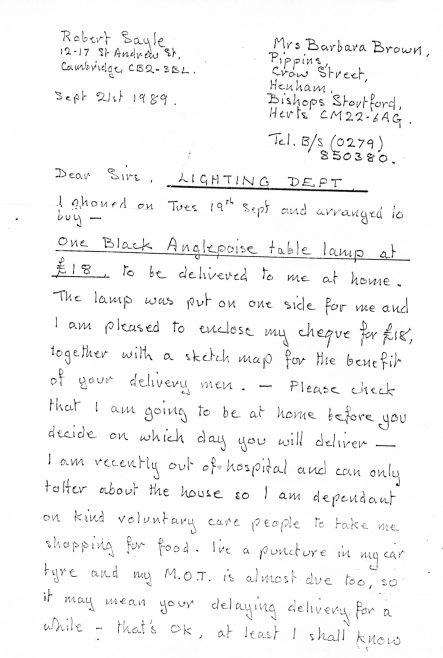 Robert Sayle
12-17 St Andrew St,
Cambridge CB2-3BL.
Sept 21st 1989.
Mrs Barbara Brown,
Pippins,
Crow Street,
Henham,
Bishops Stortford,
Herts CM22-6AG.
Tel. B/S (0279)
850380.
Dear Sirs, LIGHTING DEPT
I phoned on Tues 19th Sept and arranged to
buy —
One Black Anglepoise table lamp at
£18, to be delivered to me at home.
The lamp was put on one side for me and
I am pleased to enclose my cheque for £18,
together with a sketch map for the benefit
of your delivery men. — Please check
that I am going to be at home before you
decide on which day you will deliver —
I am recently out of hospital and can only
totter about the house so I am dependant
on kind voluntary care people to take me
shopping for food. I've a puncture in my car
tyre and my M.O.T. is almost due too, so
it may mean your delaying delivery for a
while – that's OK, at least I shall know